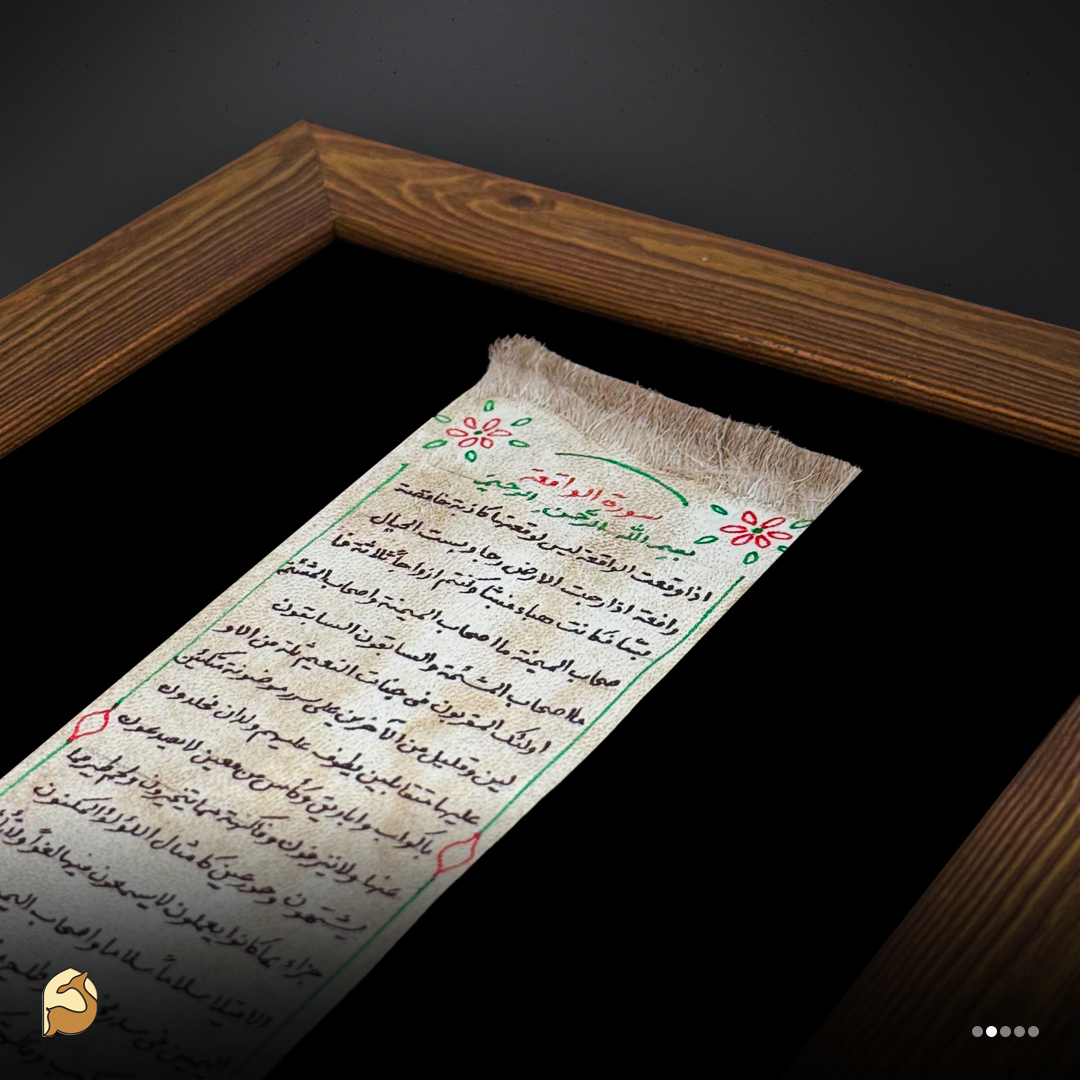 سورة الواقعة
بسم الله الرحمن الرحيم
اذا وقعت الواقعة ليس لوقعتها كاذبة خافضة
رافعة اذا رجت الارض رجا وبست الجبال
بسًا فكانت هباء منبثا وكنتم ازواجاً ثلاثة فا
صحاب الميمنة ما اصحاب الميمنة واصحاب المشئمة
ما اصحاب المشئمة والسابقون السابقون
اولئك المقربون في جنات النعيم ثلة من الاو
لين وقليل من الآخرين على سرر موضونة متكئين
عليها متقابلين يطوف عليهم ولدان مخلدون
باكواب واباريق وكأس من معين لا يصدعون
عنها ولا ينزفون وفاكهة مما يتخيرون ولحم طير مما
يشتهون وحور عين كامثال اللؤلؤ المكنون
جزاء بما كانوا يعملون لا يسمعون فيها لغواً ولا
الا قيلا سلاماً سلاما واصحاب
اليمين في سدر